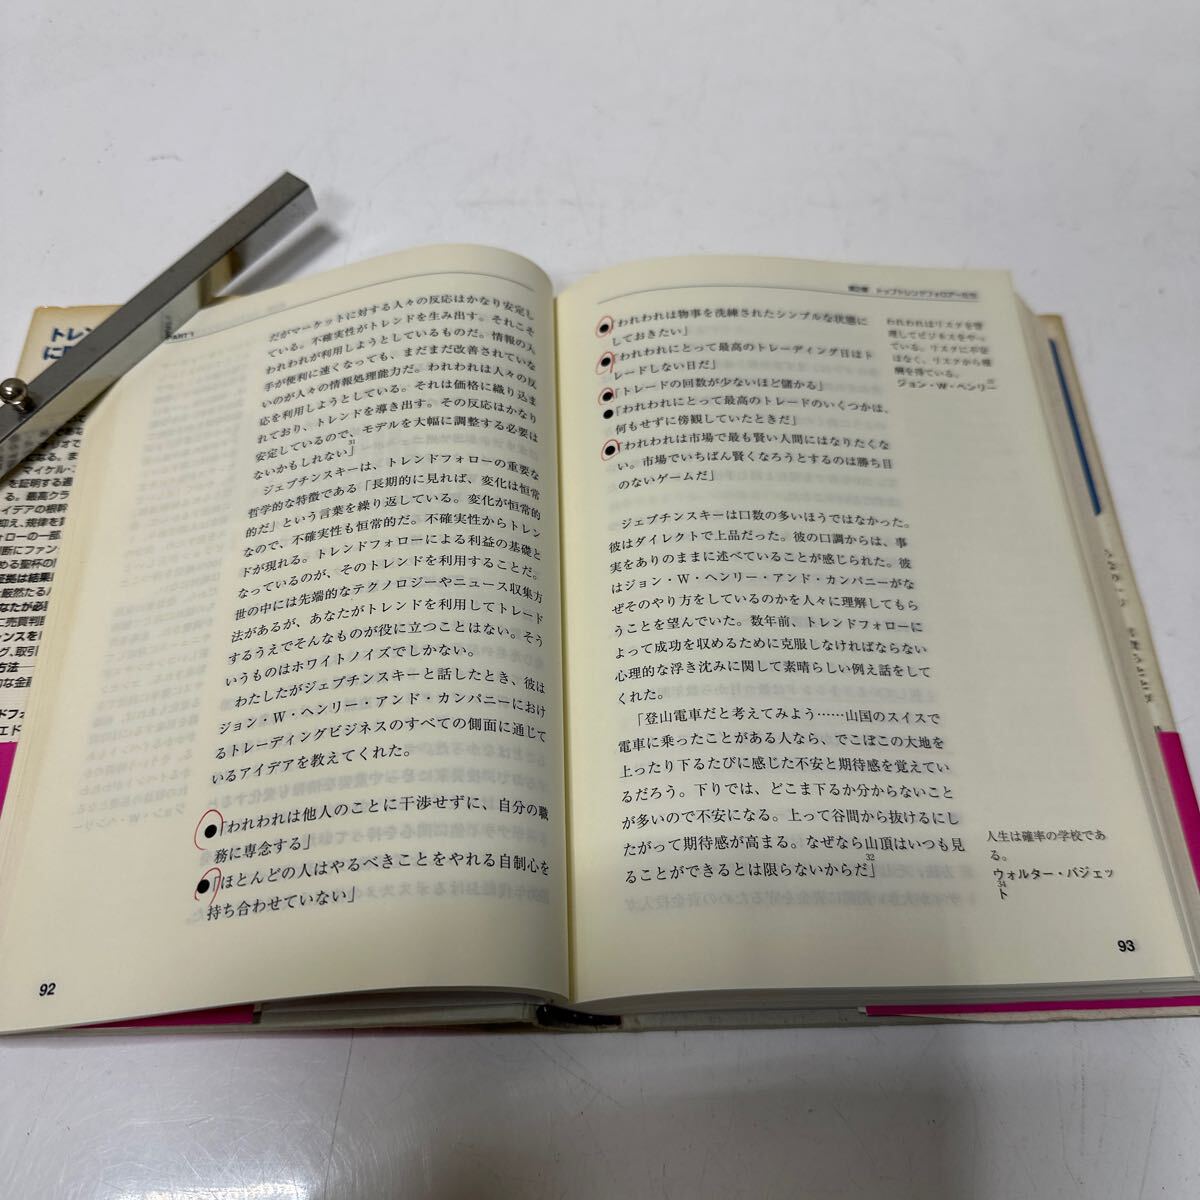 PART 1
だがマーケットに対する人々の反応はかなり安定し
ている。不確実性がトレンドを生み出す。それこそ
われわれが利用しようとしているものだ。情報の入
手が便利に速くなっても、まだまだ改善されていな
いのが人々の情報処理能力だ。われわれは人々の反
応を利用しようとしている。それは価格に織り込ま
れており、トレンドを導き出す。その反応はかなり
安定しているので、モデルを大幅に調整する必要は
ないかもしれない」31
ジェプチンスキーは、トレンドフォローの重要な
哲学的な特徴である「長期的に見れば、変化は恒常
的だ」という言葉を繰り返している。変化が恒常的
なので、不確実性も恒常的だ。不確実性からトレン
ドが現れる。トレンドフォローによる利益の基礎と
なっているのが、そのトレンドを利用することだ。
世の中には先端的なテクノロジーやニュース収集方
法があるが、あなたがトレンドを利用してトレード
するうえでそんなものが役に立つことはない。そう
いうものはホワイトノイズでしかない。
わたしたがジェプチンスキーと話したとき、彼は
ジョン・W・ヘンリー・アンド・カンパニーにおけ
るトレーディングビジネスのすべての側面に通じて
いるアイデアを教えてくれた。
●「われわれは他人のことに干渉せずに、自分の職
務に専念する」
●「ほとんどの人はやるべきことをやれる自制心を
持ち合わせていない」
92
第2章 トップトレンドフォロアーたち
●「われわれは物事を洗練されたシンプルな状態に
しておきたい」
●「われわれにとって最高のトレーディング日はト
レードしない日だ」
●「トレードの回数が少ないほど儲かる」
●「われわれにとって最高のトレードのいくつかは、
何もせずに傍観していたときだ」
●「われわれは市場で最も賢い人間にはなりたくな
い。市場でいちばん賢くなろうとするのは勝ち目
のないゲームだ」
ジェプチンスキーは口数の多いほうではなかった。
彼はダイレクトで上品だった。彼の口調からは、事
実をありのままに述べていることが感じられた。彼
はジョン・W・ヘンリー・アンド・カンパニーがな
ぜそのやり方をしているのかを人々に理解してもら
うことを望んでいた。数年前、トレンドフォローに
よって成功を収めるために克服しなければならない
心理的な浮き沈みに関して素晴らしい例え話をして
くれた。
「登山電車だと考えてみよう……山国のスイスで
電車に乗ったことがある人なら、でこぼこの大地を
上ったり下るたびに感じた不安と期待感を覚えてい
るだろう。下りでは、どこま下るか分からないこと
が多いので不安になる。上って谷間から抜けるにし
たがって期待感が高まる。なぜなら山頂はいつも見
ることができるとは限らないからだ」32
われわれはリスクを管
理してビジネスをやっ
ている。リスクに不安
はなく、リスクから報
酬を得ている。
ジョン・W・ヘンリー
人生は確率の学校であ
る。
ウォルター・バジェッ
ト34
93